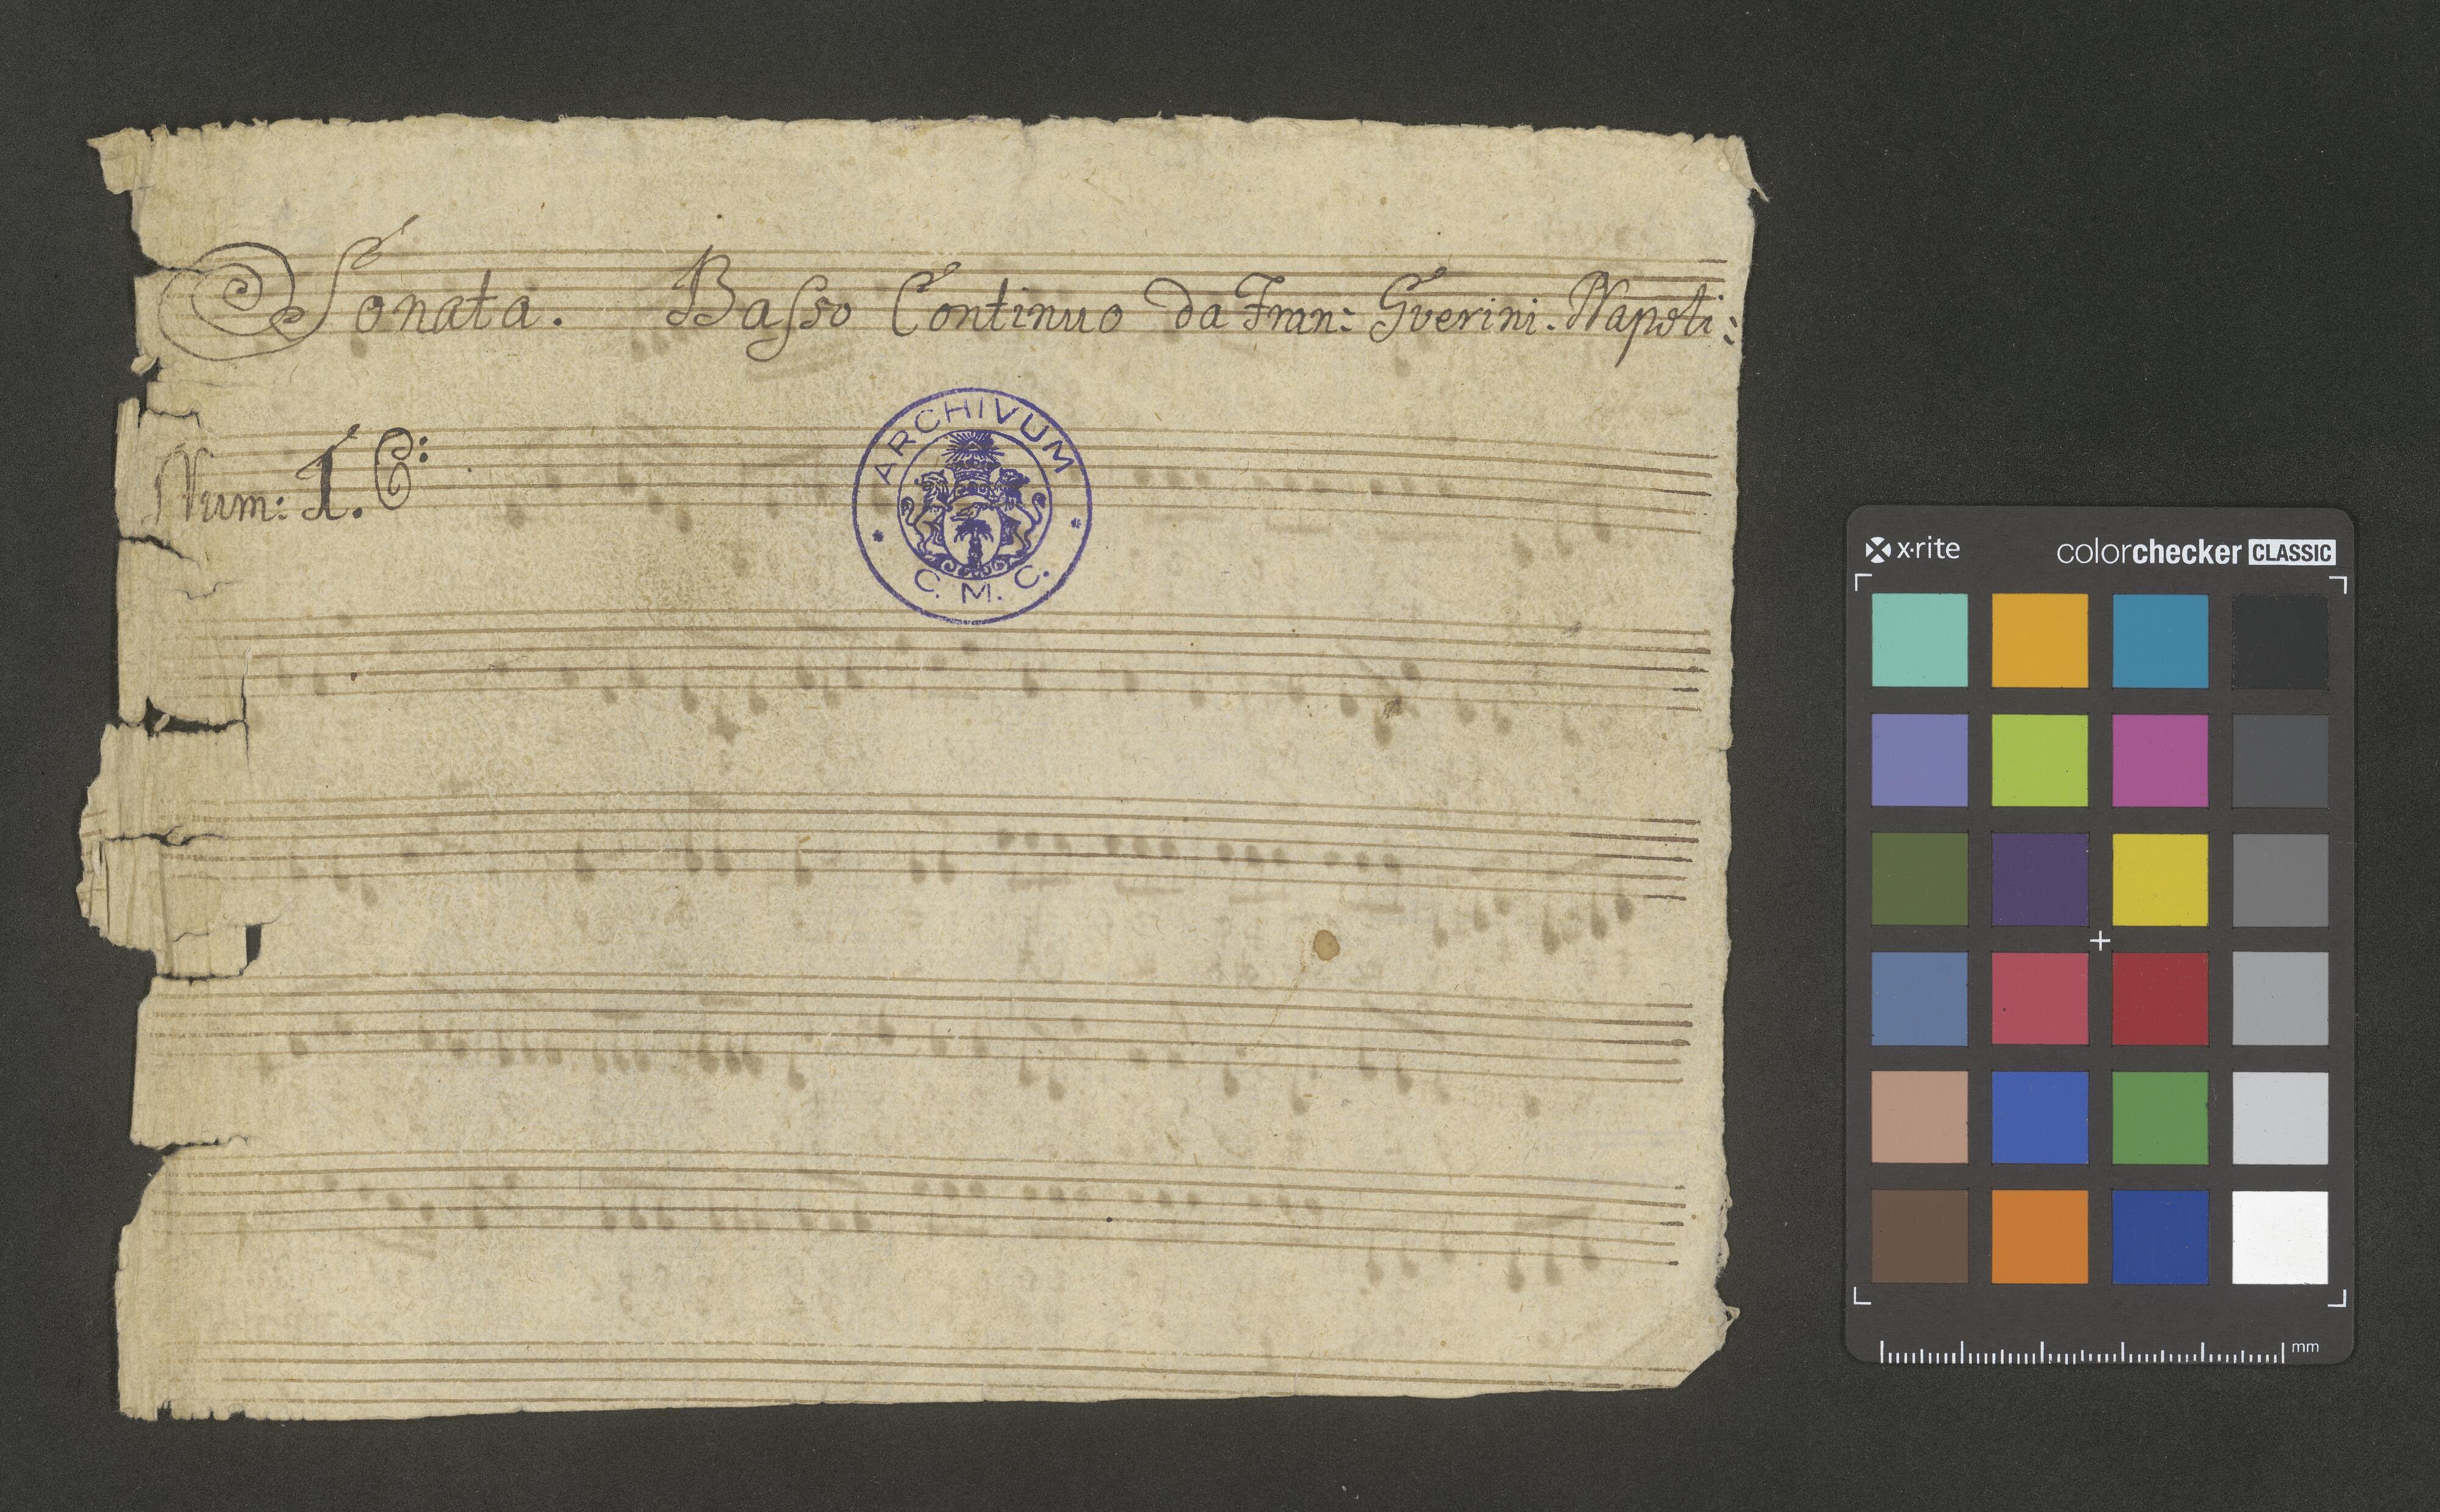 Sonata. Baſso Continuo da Fran: Gverini. Napoli:
Num: 1. C:
ARCHIVUM
C. M. C.
x·rite colorchecker CLASSIC
mm